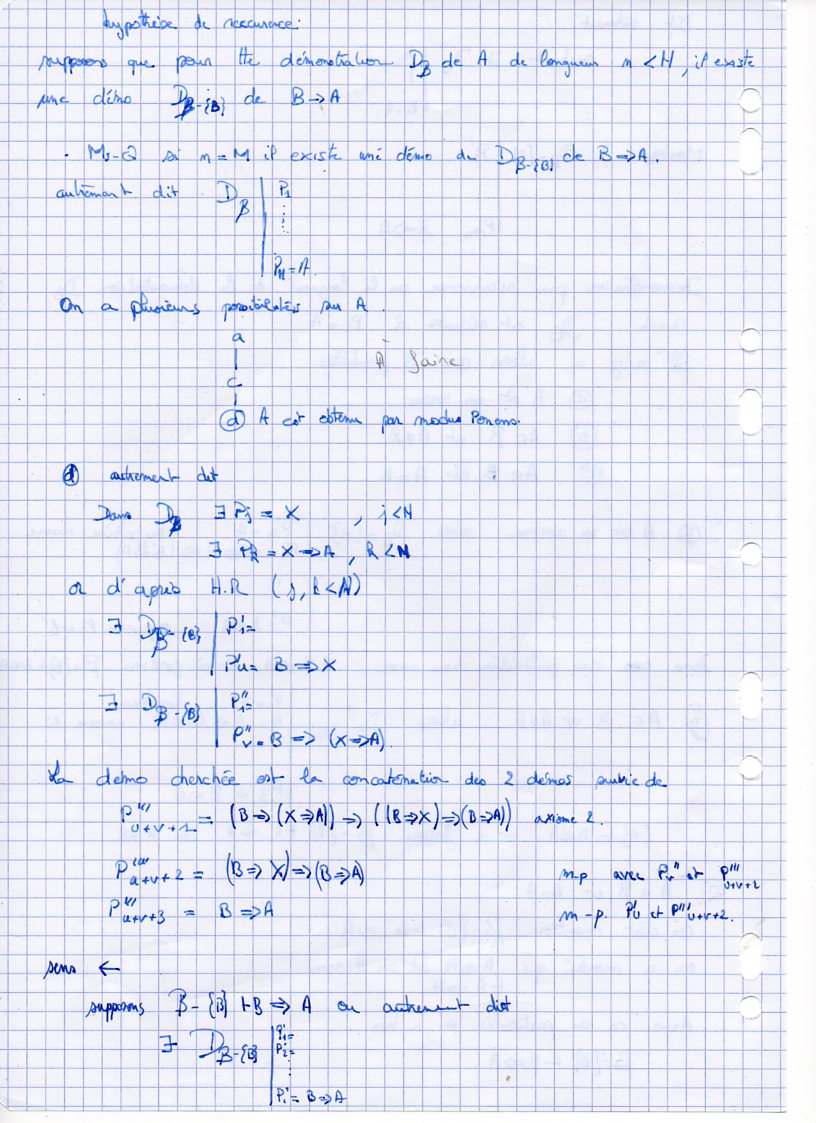 hypothèse de reccurence:
supposons que pour tte démonstration D_β de A de longueur n < N, il existe
une démo D_β-{B} de B ⇒ A
. M-Q si n = N il existe une démo de D_β-{B} de B ⇒ A.
autrement dit D_β | P_1
⋮
P_N = A.
On a plusieurs possibilités sur A.
a
|
c
|
ⓓ A est obtenu par modus Ponens.
À faire
ⓓ autrement dit
Dans D_β ∃ P_j = X , j < N
∃ P_k = X ⇒ A, k < N
or d'après H.R (j, k < N)
∃ D_β-{B} | P'_1 =
P'_u = B ⇒ X
∃ D_β-{B} | P''_1 =
P''_v = B ⇒ (X ⇒ A).
La demo cherchée est la concaténation des 2 démos suivie de
P'''_u+v+1 = (B ⇒ (X ⇒ A)) ⇒ ((B ⇒ X) ⇒ (B ⇒ A)) axiome 2.
P'''_u+v+2 = (B ⇒ X) ⇒ (B ⇒ A) m-p avec P''_v et P'''_u+v+1
P'''_u+v+3 = B ⇒ A m-p. P'_u et P'''_u+v+2.
sens ←
supposons β-{B} ⊢ B ⇒ A ou autrement dit
∃ D_β-{B} | P'_1 =
P'_2 =
⋮
P'_i = B ⇒ A